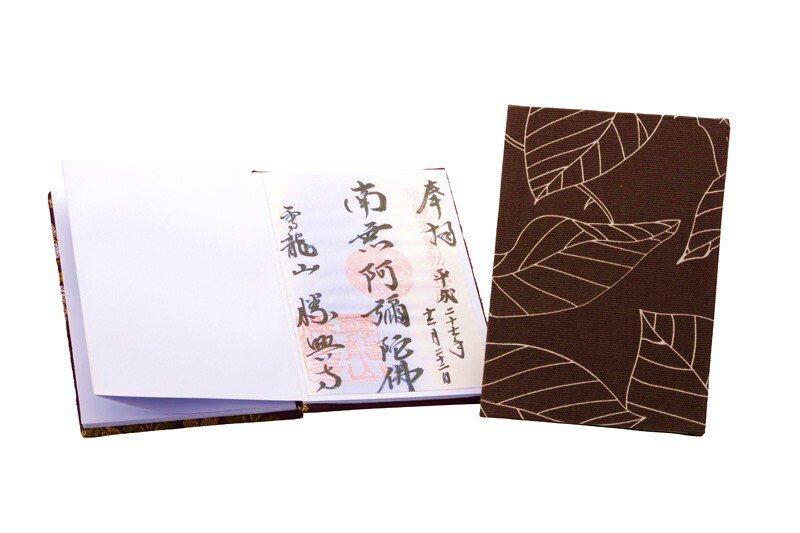 奉拝
平成二十七年
十二月二十二日
南無阿彌陀佛
雲龍山
勝興寺